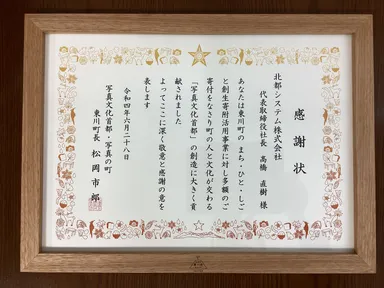 感謝状
北都システム株式会社
代表取締役社長 高橋 直樹 様
あなたは東川町のまち・ひと・しご
と創生寄附活用事業に対し多額のご
寄付をなさり町の人と文化が交わる
「写真文化首都」の創造に大きく貢
献されました
よってここに深く敬意と感謝の意を
表します
令和四年六月二十八日
写真文化首都・写真の町
東川町長 松岡市郎